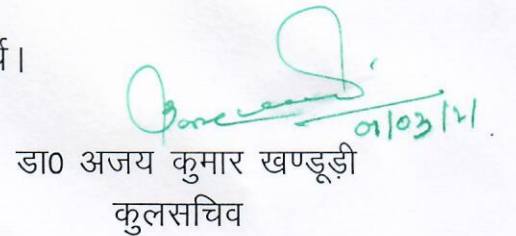 र्य।
01/03/21
डा0 अजय कुमार खण्डूड़ी
कुलसचिव